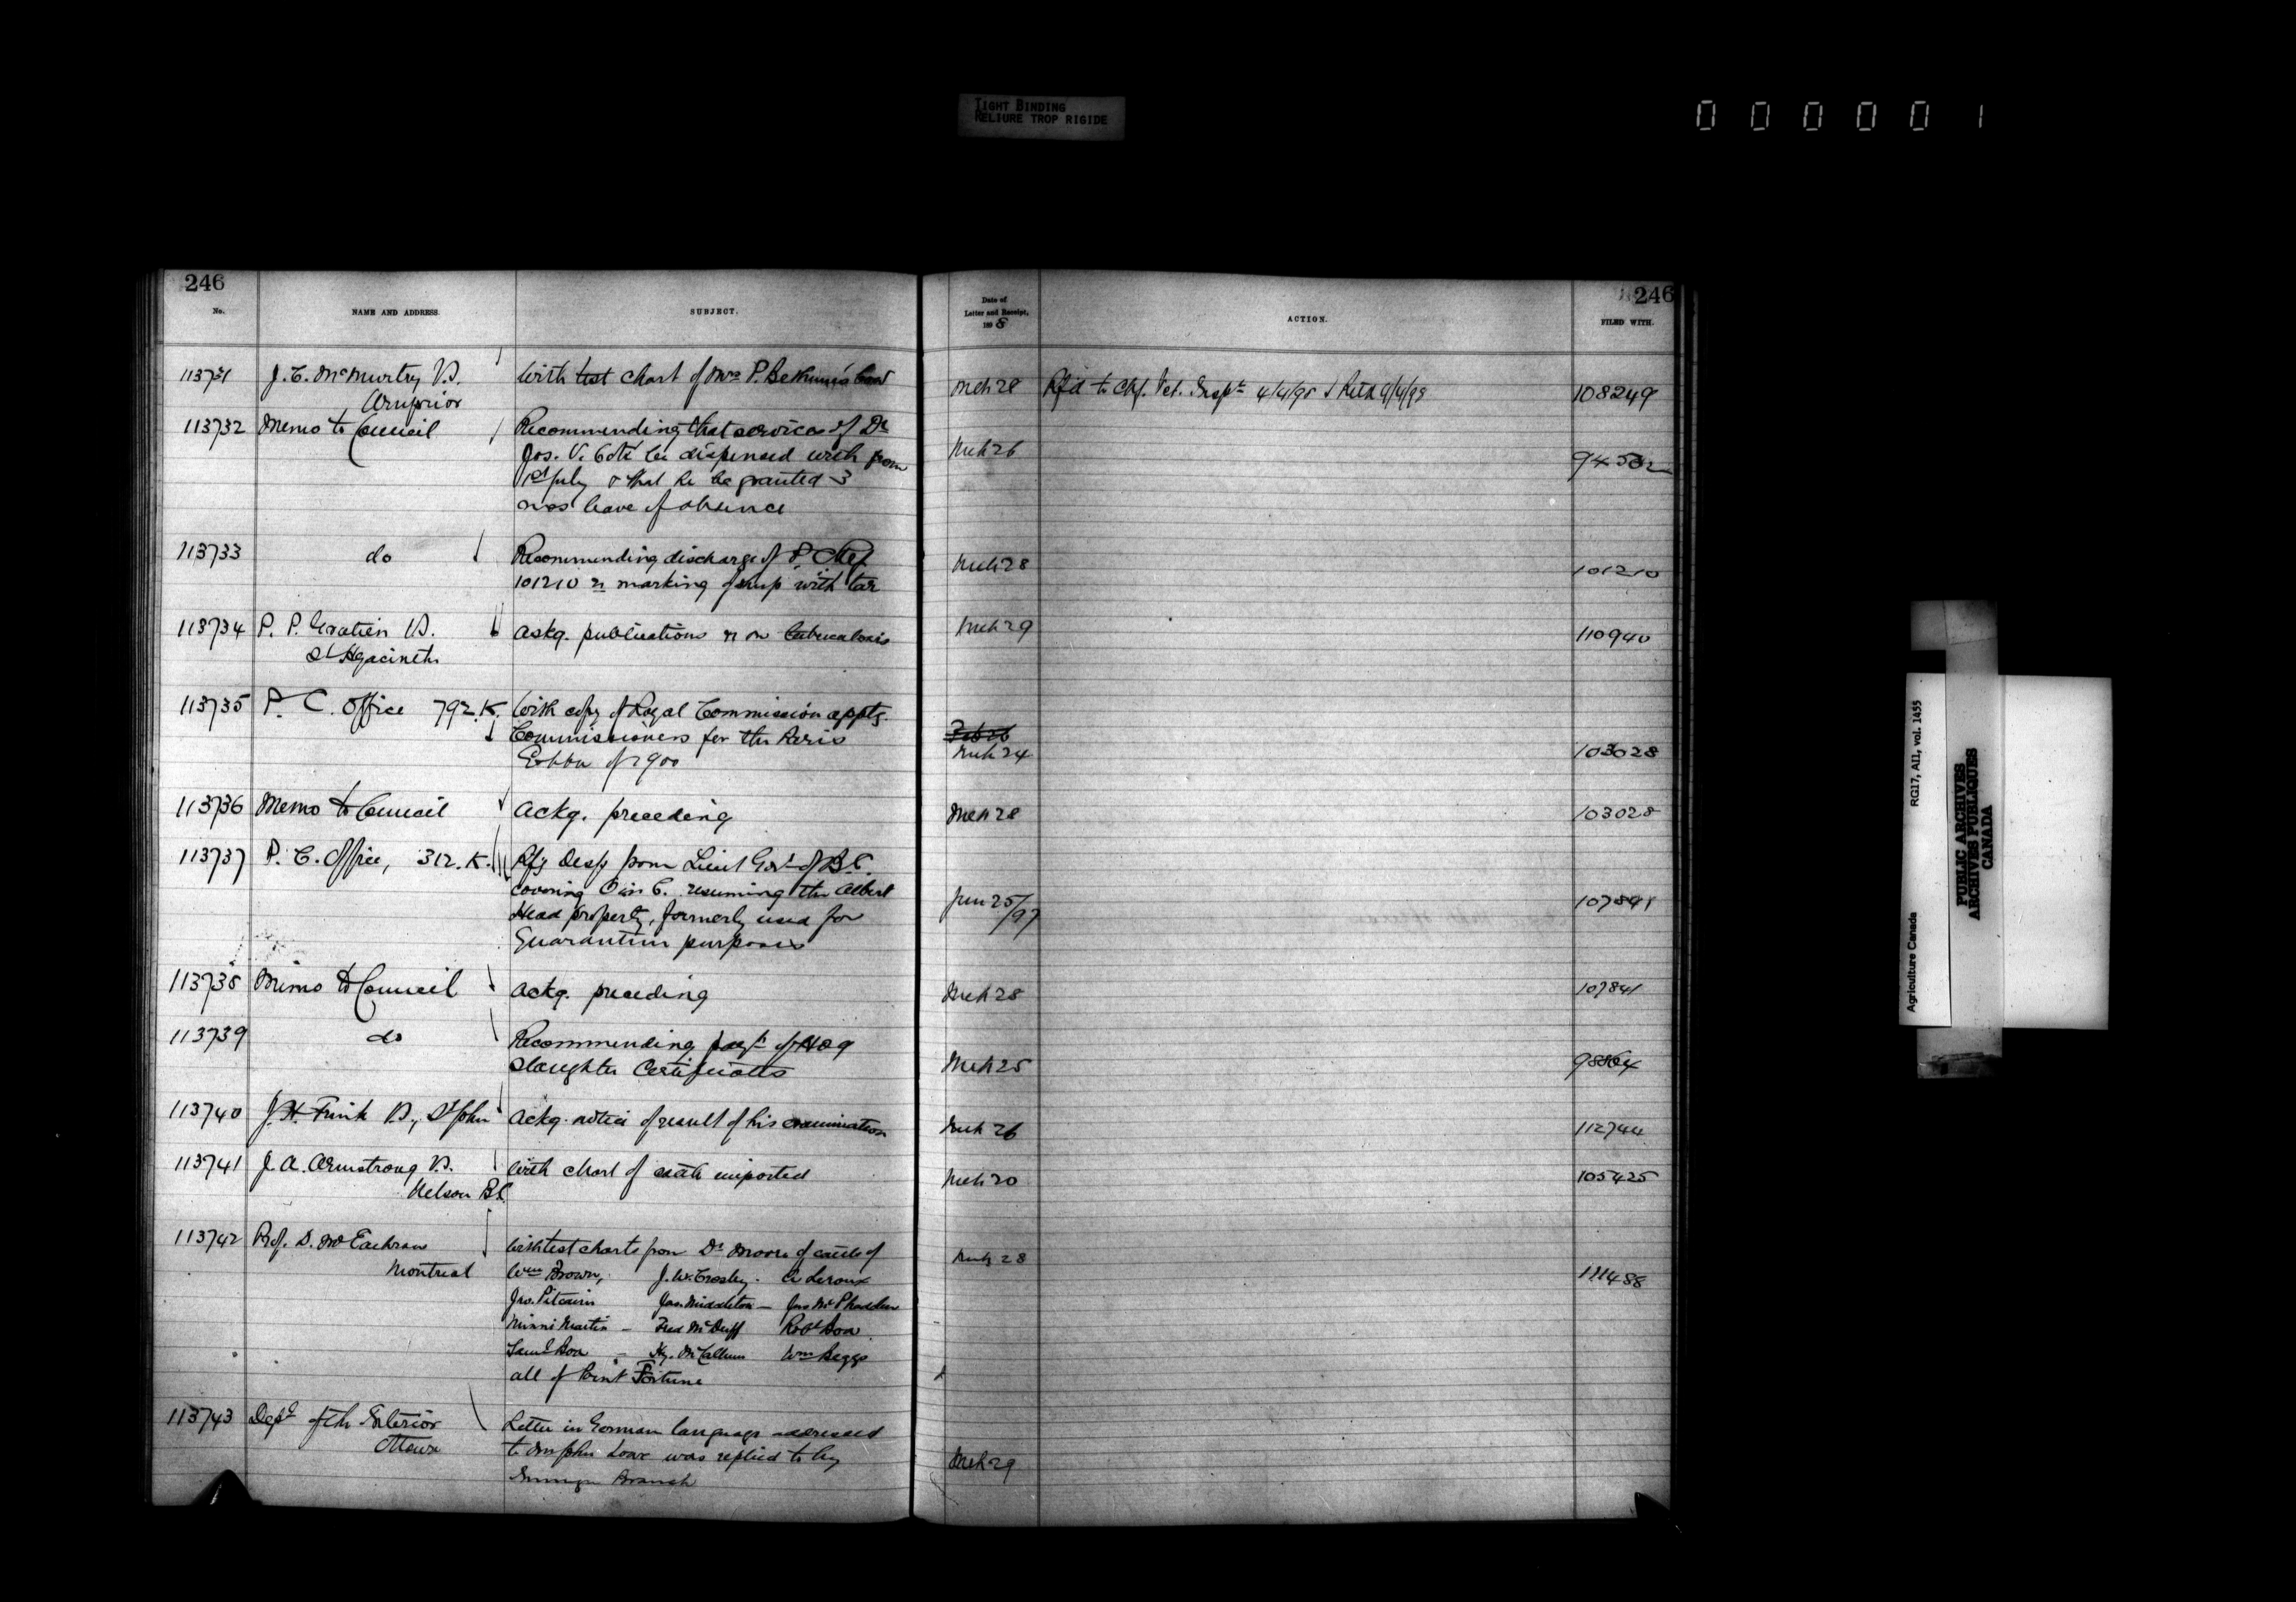 TIGHT BINDING
RELIURE TROP RIGIDE
000001
246
No. NAME AND ADDRESS. SUBJECT.
Date of
Letter and Receipt,
1898
ACTION.
246
FILED WITH.
113731 J. C. McMurtry V.S. With test chart of Mrs P. cow Mch 28 Rf'd to Chf. Vet. Inspr 4/4/98 108249
Arnprior
113732 Memo to Council Recommending that services of Dr Mch 26
Jos. V. Coté be dispensed with from
1st July & that he be granted 3
mos leave of absence
113733 do Recommending discharge of P. Mch 28
101210 re marking of sheep with tar 101210
113734 P. P. Gratien V.S. Askg. publications on tuberculosis Mch 29 110940
St Hyacinthe
113735 P. C. Office 792.K. With copy of Royal Commission apptg.
Commissioners for the Paris Feb 26
Exhbn of 1900 Mch 24 103028
113736 Memo to Council Ackg. preceding Mch 28 103028
113737 P. C. Office, 312.K. Rfg Desp from Lieut Govr of B.C.
covering O in C. resuming the Albert Jun 25/97 107841
Head property, formerly used for
Quarantine purposes
113738 Memo to Council Ackg. preceding Mch 28 107841
113739 do Recommending payt of Hog
Slaughter Certificates Mch 25 98864
113740 J. H. Frink V.S., St John Ackg. notice of result of his examination Mch 26 112744
113741 J. A. Armstrong V.S. With chart of cattle imported Mch 20 105425
Nelson B.C.
113742 Prof. D. McEachran With test charts from Dr Moore of cattle of Mch 28
Montreal Wm Brown, J. W. Crosley. A Leroux 111488
Jno. Pitcairn Jas. Middleton — Jas McPhadden
Minni Martin — Fred McDuff Robt Boa
Saml Boa — Hy. McCallum Wm Beggs
all of Point Fortune
113743 Dept of the Interior Letter in German language addressed
Ottawa to Mr John Lowe was replied to by Mch 29
Immign Branch
Agriculture Canada RG17, AII, vol. 1455
PUBLIC ARCHIVES
ARCHIVES PUBLIQUES
CANADA